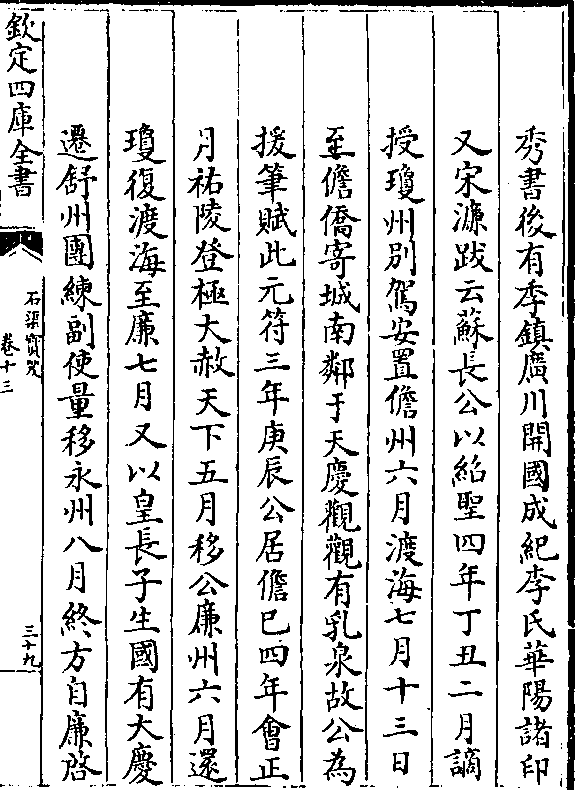 秀書後有季鎮廣川開國成紀李氏華陽諸印
又宋濂跋云蘇長公以紹聖四年丁丑二月謫
授瓊州別駕安置儋州六月渡海七月十三日
至儋僑寄城南鄰于天慶觀觀有乳泉故公為
援筆賦此元符三年庚辰公居儋巳四年會正
月祐陵登極大赦天下五月移公廉州六月還
瓊復渡海至廉七月又以皇長子生國有大慶
遷舒州團練副使量移永州八月終方自廉啓
欽定四庫全書
石渠寳笈
卷十三
三十九